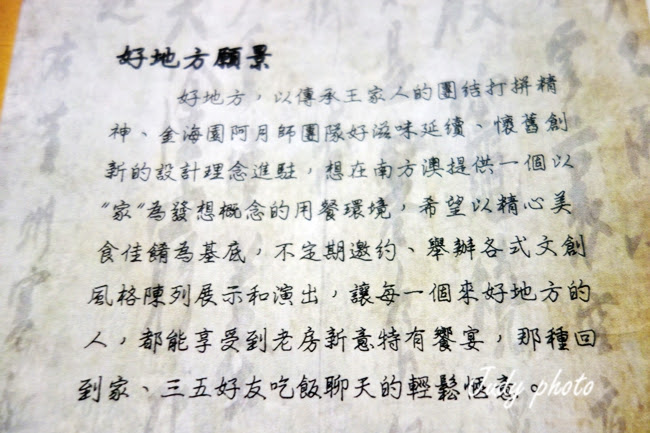 好地方願景
好地方，以傳承王家人的團結打拼精
神、金海園阿月師團隊好滋味延續、懷舊創
新的設計理念進駐，想在南方澳提供一個以
"家"為發想概念的用餐環境，希望以精心美
食佳餚為基底，不定期邀約、舉辦各式文創
風格陳列展示和演出，讓每一個來好地方的
人，都能享受到老房新意特有饗宴，那種回
到家、三五好友吃飯聊天的輕鬆愜意。
Judy photo